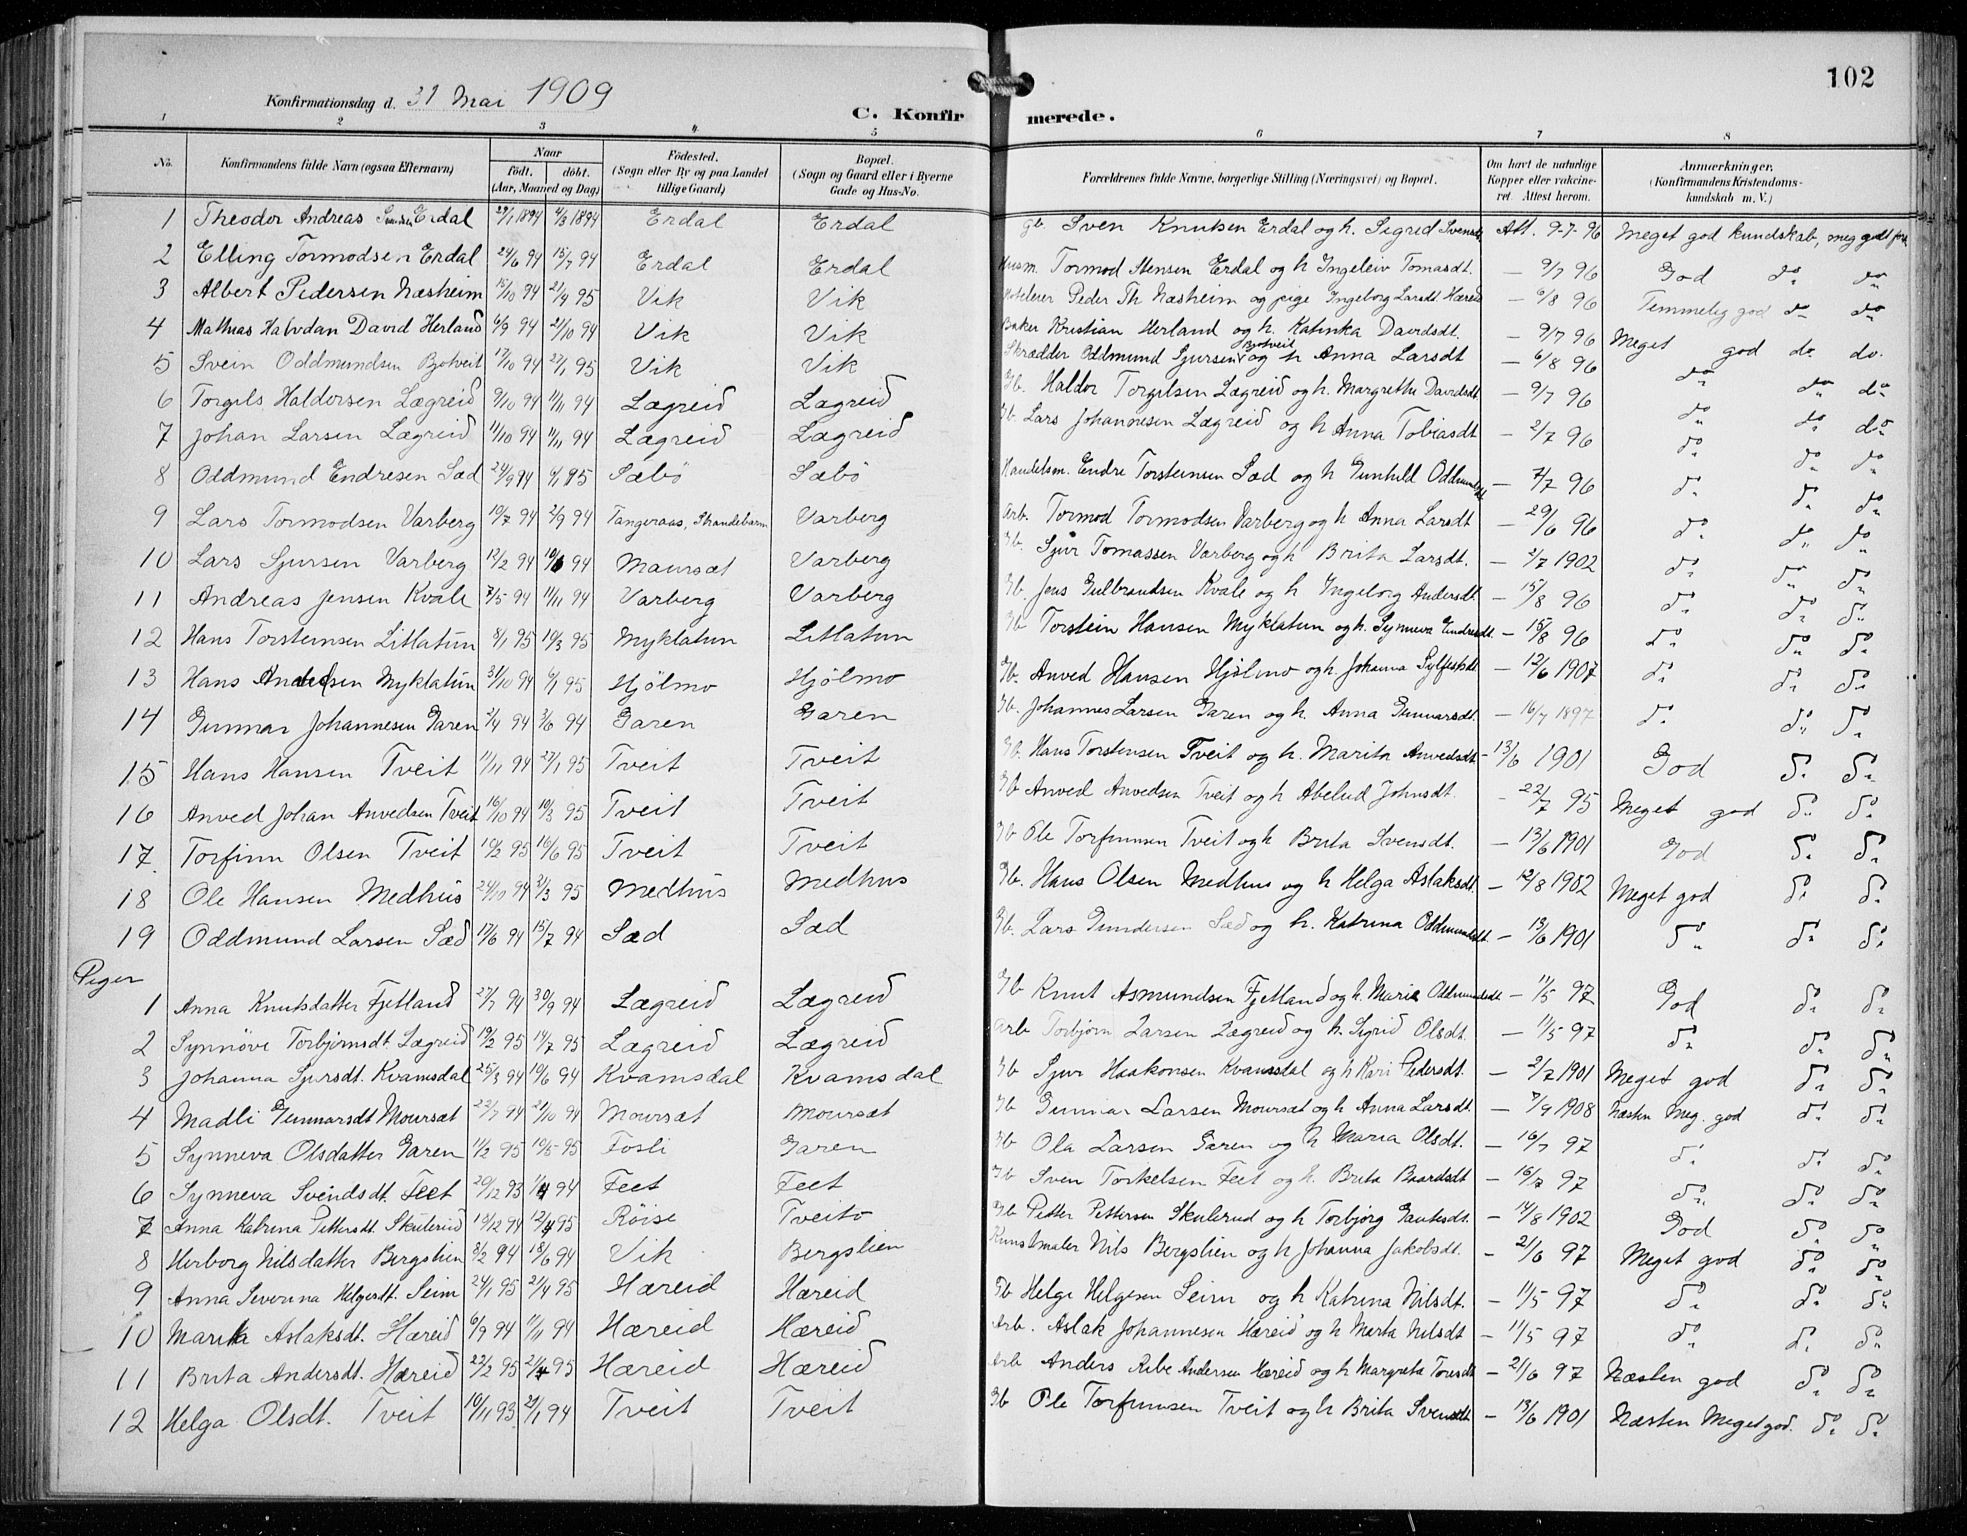 102
Konfirmationsdag d. 31 Mai 1909
C. Konfirmerede.
1 2 3 4 5 6 7 8
No. | Konfirmandens fulde Navn (ogsaa Efternavn) | Naar födt. döbt. (Aar, Maaned og Dag) | Födested. (Sogn eller By og paa Landet tillige Gaard) | Bopæl. (Sogn og Gaard eller i Byerne Gade og Hus-No. | Forældrenes fulde Navne, borgerlige Stilling (Næringsvei) og Bopæl. | Om havt de naturlige Kopper eller vakcineret. Attest herom. | Anmærkninger, (Konfirmandens Kristendomskundskab m. V.)
1 Theodor Andreas Svensen Erdal 29/1 1894 4/3 1894 Erdal Erdal Gb. Sven Knutsen Erdal og h. Sigrid Svensdt. Att. 9-7-96 Meget god kundskab, meg godt forh
2 Elling Tormodsen Erdal 24/6 94 15/7 94 Erdal Erdal Husm. Tormod Stensen Erdal og h Ingeleiv Tomasdt. — 9/7 96 God do do
3 Albert Pedersen Næsheim 15/10 94 21/4 95 Vik Vik Hoteleier Peder Th Næsheim og pige Ingeborg Larsdt Hæreid — 6/8 96 Temmelig god do do
4 Mathias Halvdan David Herland 6/9 94 21/10 94 Vik Vik Baker Kristian Herland og h. Katinka Davidsdt. — 9/7 96 Meget god do do.
5 Svein Oddmundsen Bjotveit 17/10 94 27/1 95 Vik Vik Skrædder Oddmund Sjursen Bjotveit og h Anna Larsdt — 6/8 96 do do do
6 Torgils Haldorsen Lægreid 9/10 94 11/11 94 Lægreid Lægreid Gb. Haldor Torgilsen Lægreid og h. Margrethe Davidsdt — 9/7 96 do do do
7 Johan Larsen Lægreid 11/10 94 11/11 94 Lægreid Lægreid Gb. Lars Johannesen Lægreid og h Anna Tobiasdt — 2/7 96 do do do
8 Oddmund Endresen Sæd 24/9 94 6/1 95 Sæbö Sæbö Handelsm. Endre Torsteinsen Sæd og h Gunhild Oddmundsdt — 7/7 96 do do do
9 Lars Tormodsen Varberg 10/7 94 2/9 94 Tangeraas, Strandebarm Varberg Arb. Tormod Tormodsen Varberg og h Anna Larsdt — 29/6 96 do do do
10 Lars Sjursen Varberg 12/2 94 10/6 94 Maursæt Varberg Gb. Sjur Tomassen Varberg og h Brita Larsdt. — 2/7 1902 do do do
11 Andreas Jensen Kvale 7/5 94 11/11 94 Varberg Varberg Gb. Jens Gulbrandsen Kvale og h Ingeborg Andersdt. — 15/8 96 do do do
12 Hans Torsteinsen Litlatun 8/1 95 10/3 95 Myklatun Litlatun Gb Torstein Hansen Myklatun og h. Synneva Endresdt. — 15/8 96 do do do
13 Hans Myklatun 31/10 94 6/1 95 Hjölmo Hjölmo Gb. Anved Hansen Hjölmo og h. Johanna Sylfestdt — 12/6 1907 do do do
14 Gunnar Johannesen Garen 2/4 94 3/6 94 Garen Garen Gb. Johannes Larsen Garen og h. Anna Gunnarsdt. — 16/7 1897 do do do
15 Hans Hansen Tveit 11/11 94 27/1 95 Tveit Tveit Gb. Hans Torstensen Tveit og h. Marita Anvedsdt — 13/6 1901 God do do
16 Anved Johan Anvedsen Tveit 16/10 94 10/3 95 Tveit Tveit Gb Anved Anvedsen Tveit og h Abelud Johnsdt. — 22/7 95 Meget god do do
17. Torfinn Olsen Tveit 19/2 95 16/6 95 Tveit Tveit Gb Ole Torfinnsen Tveit og h Brita Svensdt. — 13/6 1901 God do do
18 Ole Hansen Medhus 24/10 94 21/3 95 Medhus Medhus Gb. Hans Olsen Medhus og h Helga Aslaksdt. — 12/8 1902 Meget god do do
19 Oddmund Larsen Sæd 17/6 94 15/7 94 Sæd Sæd Gb. Lars Gundersen Sæd og h. Katrina Oddmundsdt — 13/6 1901 do do do
Piger
1 Anna Knutsdatter Fjetland 27/7 94 30/9 94 Lægreid Lægreid Gb Knut Asmundsen Fjetland og h. Maria Oddmundsdt — 11/5 97 God do do
2 Synnöve Torbjörnsdt. Lægreid 19/2 95 14/7 95 Lægreid Lægreid Arb Torbjörn Larsen Lægreid og h. Sigrid Olsdt. — 11/5 97 do do do
3 Johanna Sjursdt. Kvamsdal 25/3 94 10/6 94 Kvamsdal Kvamsdal Gb Sjur Haakonsen Kvamsdal og h Kari Pedersdt. — 2/7 1901 Meget god do do
4 Madli Gunnarsdt Moursæt 22/7 94 21/10 94 Moursæt Moursæt Gb Gunnar Larsen Moursæt og h Anna Larsdt. — 7/9 1908 Næsten Meg. god do do
5 Synneva Olsdatter Garen 11/2 95 19/5 95 Fosli Garen Gb Ola Larsen Garen og h Maria Olsdt. — 16/7 97 do do do
6 Synneva Svendsdt. Feet 20/12 93 1/4 94 Feet Feet Gb Sven Torkelsen Feet og h. Brita Baardsdt — 16/7 97 do do do
7 Anna Katrina Pettersdt Skulerud 18/12 94 12/4 95 Röise Tveito Gb Petter Pettersen Skulerud og h Torbjörg Gautesdt. — 14/8 1902 God do do
8 Herborg Nilsdatter Bergslien 3/2 94 18/6 94 Vik Bergslien Kunstmaler Nils Bergslien og h Johanna Jakobsdt. — 21/6 97 Meget god do do
9 Anna Severina Helgesdt. Seim 24/1 95 21/4 95 Hæreid Hæreid Gb Helge Helgesen Seim og h Katrina Nilsdt. — 11/5 97 do do do
10 Marita Aslaksdt. Hæreid 6/9 94 11/11 94 Hæreid Hæreid Arb. Aslak Johannesen Hæreid og h Marta Nilsdt — 11/5 97 do do do
11 Brita Andersdt. Hæreid 22/2 95 21/4 95 Hæreid Hæreid Arb Anders Ribe Andersen Hæreid og h Margreta Toresdt — 21/6 97 Næsten god do do
12 Helga Olsdt. Tveit 10/11 93 21/1 94 Tveit Tveit Gb Ole Torfinnsen Tveit og h Brita Svensdt — 13/6 1901 Næsten Meget god. do do